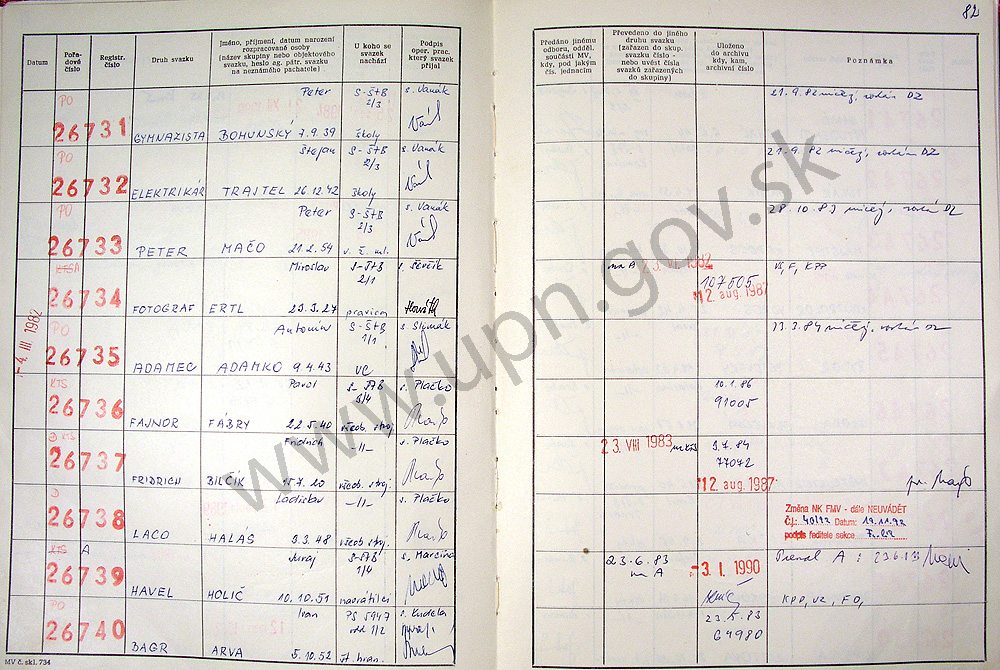 82
Datum
Pořadové číslo
Registr. číslo
Druh svazku
Jméno, příjmení, datum narození rozpracované osoby (název skupiny nebo objektového svazku, heslo ag. pátr. svazku na neznámého pachatele)
U koho se svazek nachází
Podpis oper. prac. který svazek přijal
Předáno jinému odboru, odděl. součásti MV, kdy, pod jakým čís. jednacím
Převedeno do jiného druhu svazku (zařazen do skup. svazku číslo - nebo uvést čísla svazků zařazených do skupiny)
Uloženo do archivu kdy, kam, archivní číslo
Poznámka
- 4. III. 1982
PO
26731
GYMNAZISTA
Peter
BOHUNSKÝ 7.9.39
S-ŠtB
2/3
školy
s. Vanák
21.9.82
DZ
PO
26732
ELEKTRIKÁR
Štefan
TRAJTEL 26.12.42
S-ŠtB
2/3
školy
s. Vanák
21.9.82
DZ
PO
26733
PETER
Peter
MAČO 21.2.54
S-ŠtB
2/3
s. Vanák
28.10.83
DZ
26734
FOTOGRAF
Miroslav
ERTL 23.3.27
S-ŠtB
2/1
pravica
s. Ševčík
1982
107505
12. aug. 1987
KPP
PO
26735
ADAMEC
Antonín
ADAMKO 9.4.43
S-ŠtB
1/1
VC
s. Slimák
KTS
26736
FAJNOR
Pavol
FÁBRY 22.5.40
všeob. stroj.
s. Plačko
10.1.86
91005
D KTS
26737
FRIDRICH
Fridrich
BILČÍK 15.7.20
-11-
všeob. stroj.
s. Plačko
23. VIII 1983
3.7.84
77072
12. aug. 1987
D
26738
LACO
Ladislav
HALÁS 9.3.48
-11-
všeob. stroj.
s. Plačko
Změna NK FMV - dále NEUVÁDĚT
Č.j.: 40/92 Datum: 19.11.92
podpis ředitele sekce
KTS A
26739
HAVEL
Juraj
HOLIČ 10.10.51
S-ŠtB
1/4
navrátilci
s. Marcina
23.6.83
na A
-3. I. 1990
A : 23.6.83
PO
26740
BAGR
Ivan
ARVA 5.10.52
PS 5947
odd 1/2
s. Kudela
23.5.83
C4980
KPP, VZ, FO,
MV č. skl. 734
www.upn.gov.sk